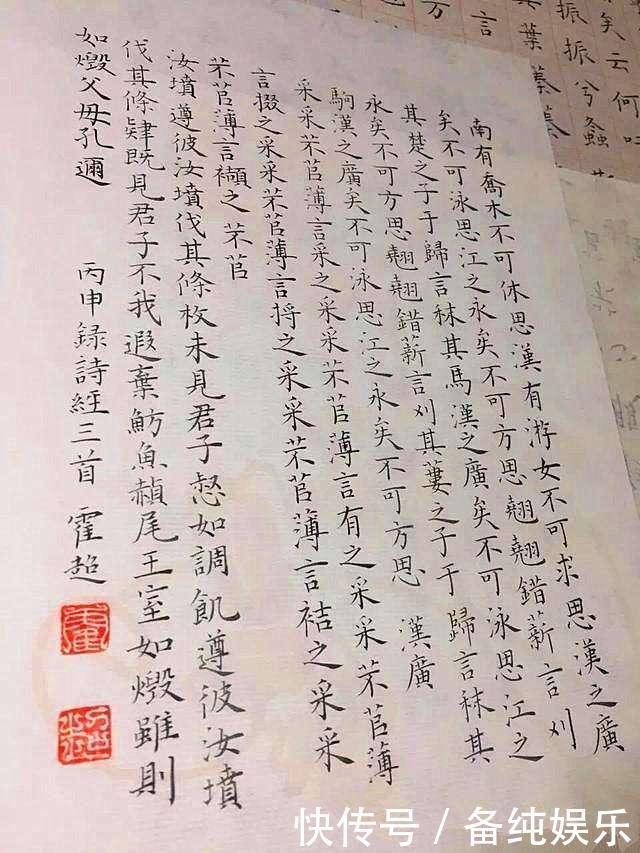 南有喬木不可休思漢有游女不可求思漢之廣
矣不可泳思江之永矣不可方思翹翹錯薪言刈
其楚之子于歸言秣其馬漢之廣矣不可泳思江之
永矣不可方思翹翹錯薪言刈其蔞之子于歸言秣其
駒漢之廣矣不可泳思江之永矣不可方思 漢廣
采采芣苢薄言采之采采芣苢薄言有之采采芣苢薄
言掇之采采芣苢薄言捋之采采芣苢薄言袺之采采
芣苢薄言襭之 芣苢
汝墳遵彼汝墳伐其條枚未見君子惄如調飢遵彼汝墳
伐其條肄既見君子不我遐棄魴魚赬尾王室如燬雖則
如燬父母孔邇 丙申録詩經三首 霍超
矣云何吁
振振兮螽
其葉蓁蓁
言
万
快传号 / 备纯娱乐